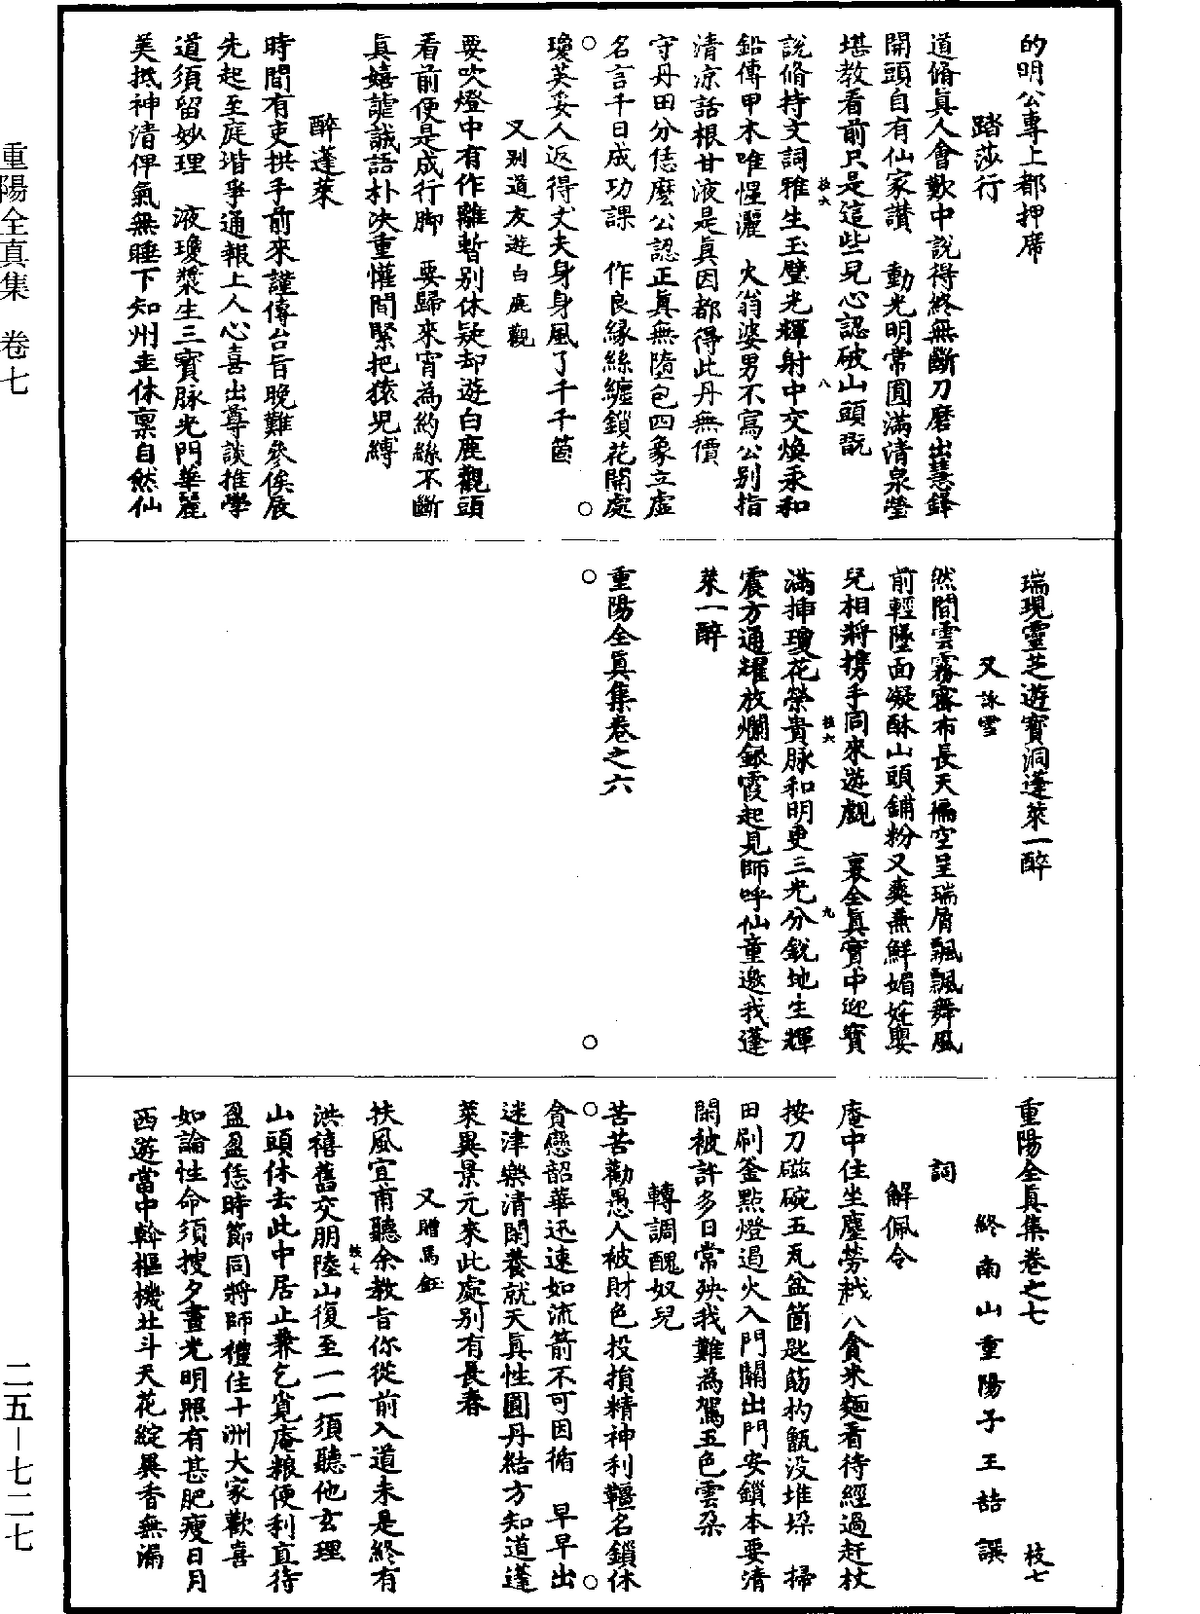 的明公專上都押席
踏莎行
道脩眞人會歎中說得終無斷刀磨出慧鋒
開頭自有仙家讃　動光明常圓滿清泉瑩
堪教看前只是這些兒心認破山頭翫
說脩持文詞雅生玉璧光輝射中交煥汞和
鉛傳甲木唯惺灑　火翁婆男不寫公别指
清凉話根甘液是眞因都得此丹無價
守丹田分恁麽公認正眞無墮包四象立虛
名言千日成功課　作良緣絲纏鎖花開處
瓊英妥人返得丈夫身身風了千千箇
又别道友遊白鹿觀
要吹燈中有作離暫别休疑却遊白鹿觀頭
看前便是成行脚　要歸來宵為約絲不斷
眞嬉謔誡語朴决重懽間緊把猿兒縛
醉蓬萊
時間有吏拱手前來謹傳台旨晚難參俟展
先起至庭谐爭通報上人心喜出尊談推學
道須留妙理　液瓊漿生三寳脉光門華麗
美抵神清俾氣無睡下知州圭休禀自然仙
瑞現靈芝遊寳洞蓬萊一醉
又詠雪
然間雲霧密布長天徧空呈瑞屑飄飄舞風
前輕墜面凝酥山頭鋪粉又爽兼鮮媚妊娿
兒相將携手同來遊戲　裏全眞實中迎寳
滿揷瓊花榮貴脉和明更三光分銳地生輝
震方通耀放爛銀霞起見師呼仙童邀我蓬
萊一醉
重陽全眞集卷之六
重陽全眞集卷之七　枝七
終南山重陽子王嚞譔
詞
解佩令
庵中住坐塵勞越八貪米麵看待經過赶杖
按刀磁碗五瓦盆箇匙筯杓甑没堆垜　掃
田刷釜點燈過火入門關出門安鎖本要清
閑被許多日常殃我難為駕五色雲朶
轉調醜奴兒
苦苦勸愚人被財色投損精神利韁名鎖休
貪戀韶華迅速如流箭不可因循　早早出
迷津樂清閑養就天眞性圓丹結方知道蓬
萊異景元來此處别有長春
又贈馬鈺
扶風宜甫聽余教旨你從前入道未是終有
洪禧舊交朋陸山復至一一須聽他玄理
山頭休去此中居止兼乞覓庵粮便利直待
盈盈恁時節同將師禮住十洲大家歡喜
如論性命須搜夕晝光明照有甚肥瘦日月
西遊當中幹樞機北斗天花綻異香無漏
枝六　八
枝六　九
枝七　一
重陽全真集　卷七
二五－七二七